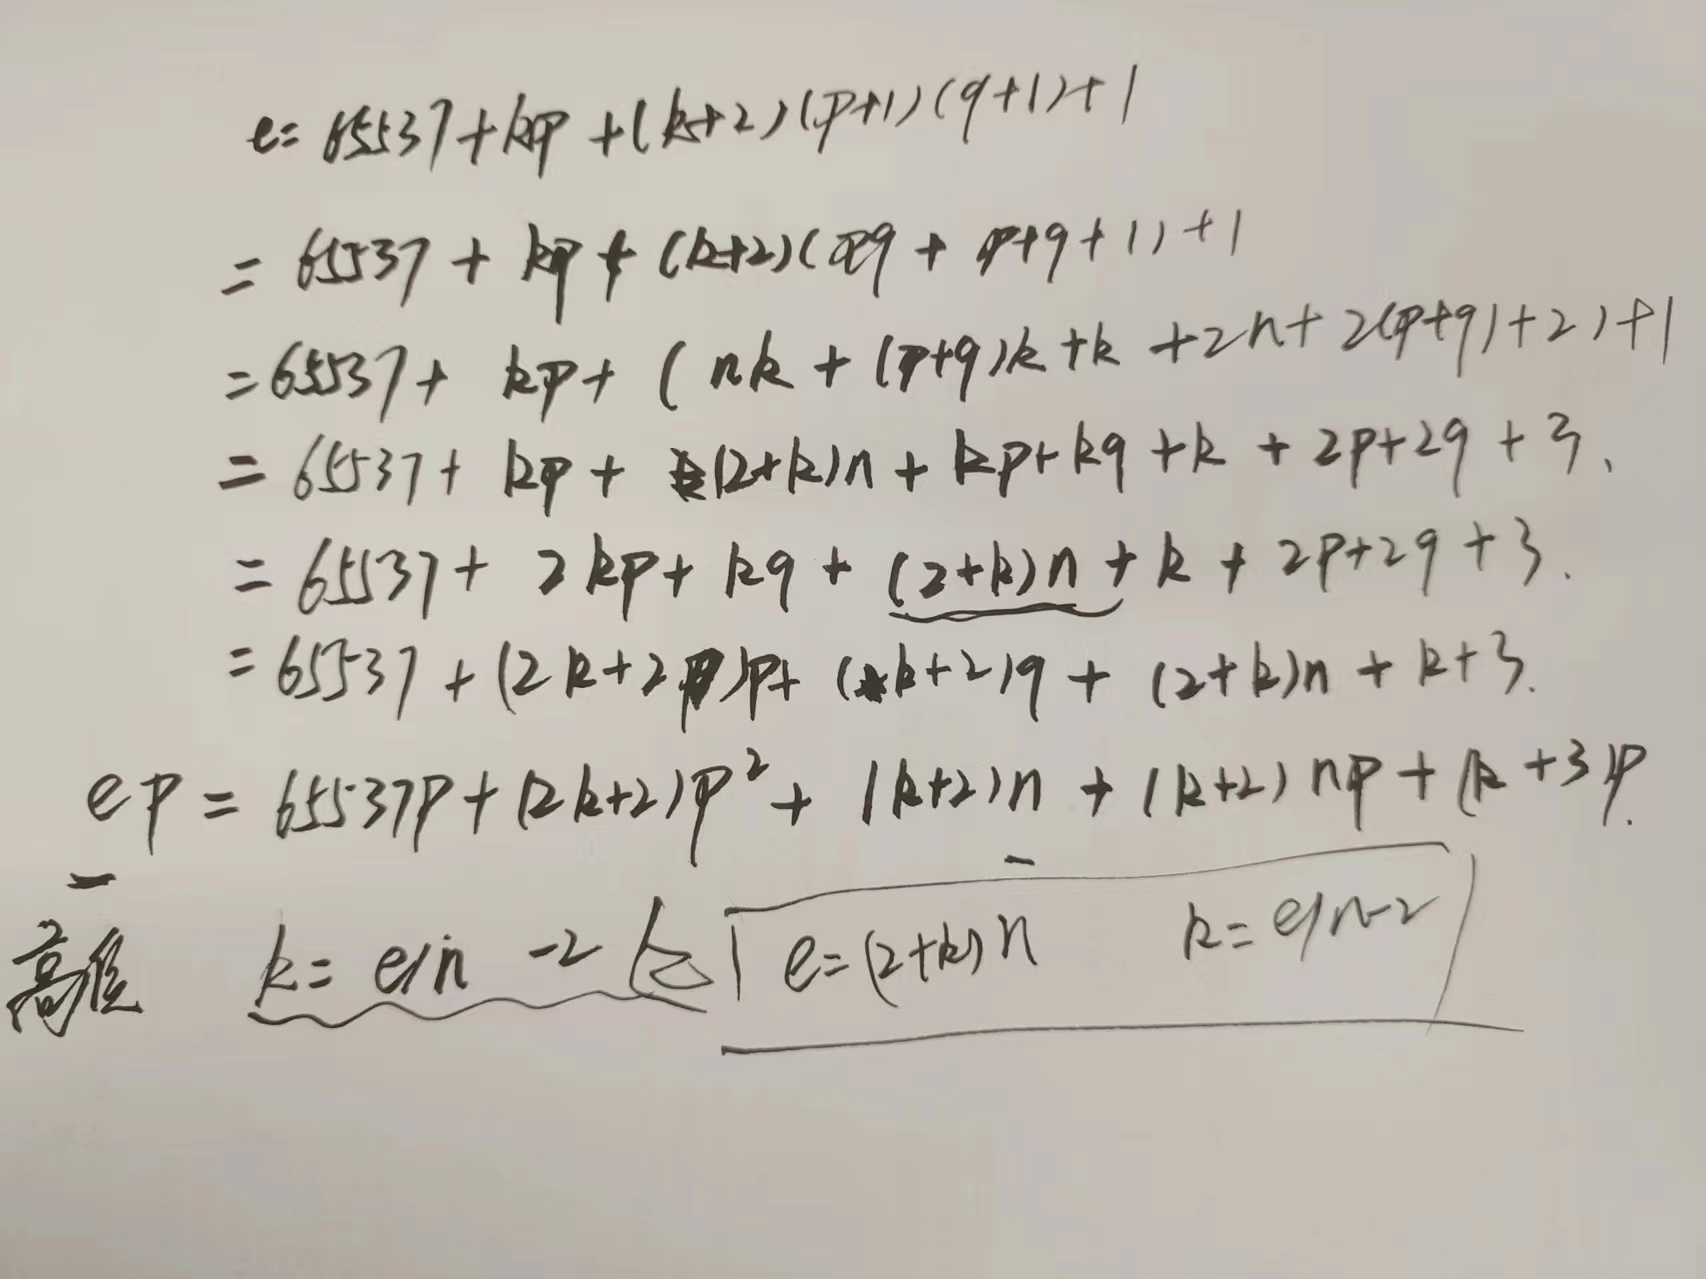 e= 65537+kp+(k+2)(p+1)(q+1)+1
= 65537 + kp + (k+2)(pq + p+q+1)+1
=65537+ kp+ (nk + (p+q)k +k +2n+ 2(p+q)+2)+1
= 65537+ kp + (2+k)n + kp+kq +k + 2p+2q +3.
= 65537+ 2kp+ kq + (2+k)n + k + 2p+2q +3.
= 65537 + (2k+2)p+ (k+2)q + (2+k)n + k+3.
ep = 65537p+(2k+2)p² + (k+2)n + (k+2)np + (k+3)p.
高位 k= e/n -2 e=(2+k)n k= e/n-2